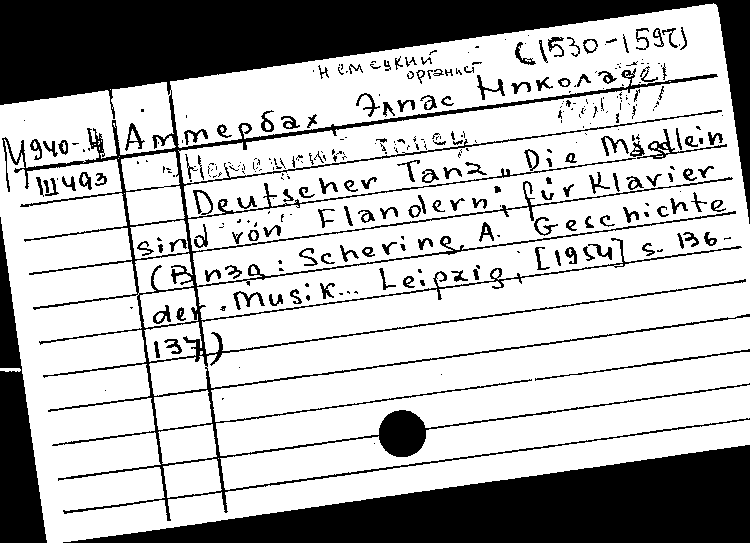 немецкий (1530-1597)
органист
М940-4 Аттербах, Элиас Николаус
Ш493 Немецкий танец
Deutscher Tanz „Die Mägdlein
sind von Flandern“, für Klavier
(В нза: Schering, A. Geschichte
der Musik... Leipzig, [1954] s. 136-
137)